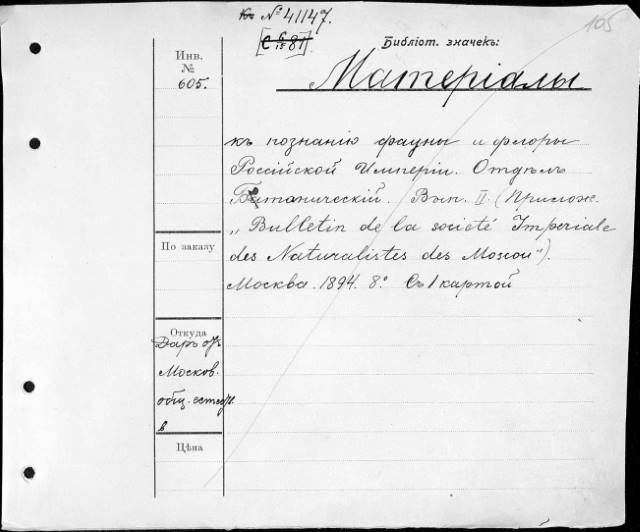 Къ № 41147.
105
Библіот. значекъ:
Инв.
№
605.
Матеріалы
къ познанію фауны и флоры
Россійской Имперіи. Отдѣлъ
Ботаническій. Вып. II. (Прилож.
„Bulletin de la société Imperiale
des Naturalistes des Moscou").
Москва. 1894. 8° Съ 1 картой
По заказу
Откуда
Даръ отъ
Москов.
общ.
в
Цѣна